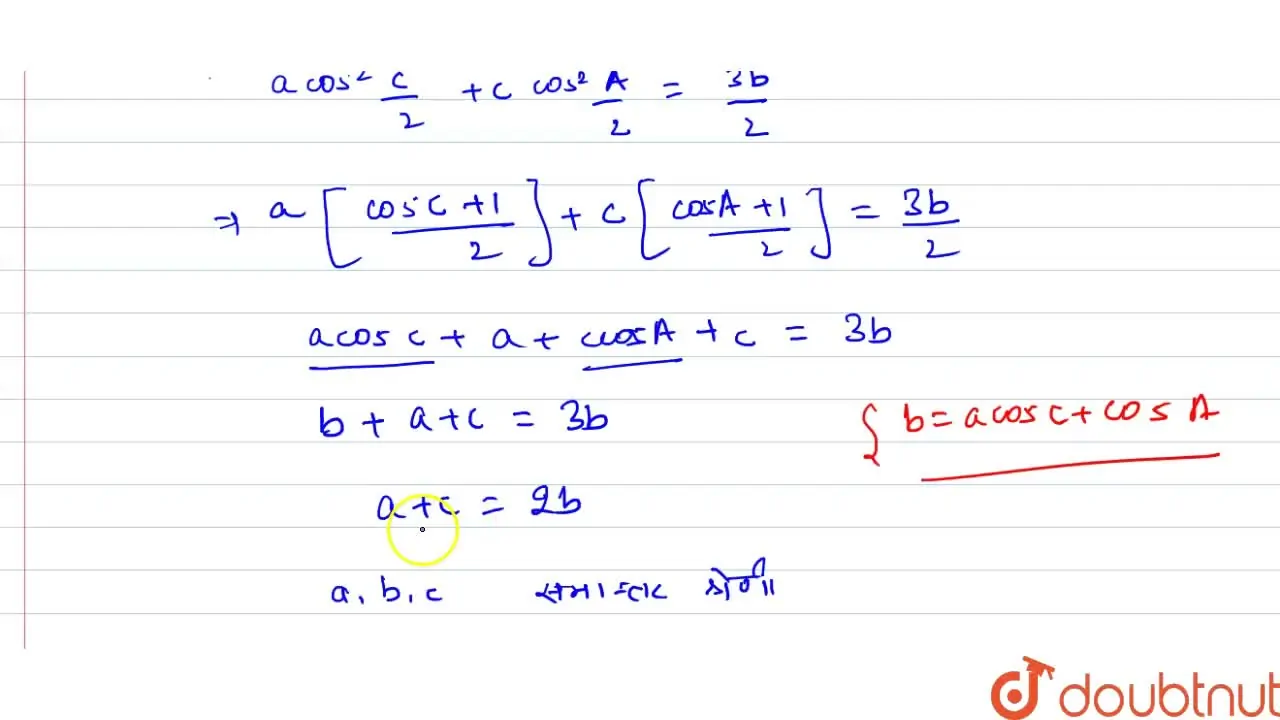 a cos² C/2 + c cos² A/2 = 3b/2
⇒ a [cos C + 1 / 2] + c [cos A + 1 / 2] = 3b/2
a cos c + a + ccosA + c = 3b
b + a + c = 3b
{ b = a cos c + cos A
a + c = 2b
a, b, c समान्तर श्रेणी
doubtnut